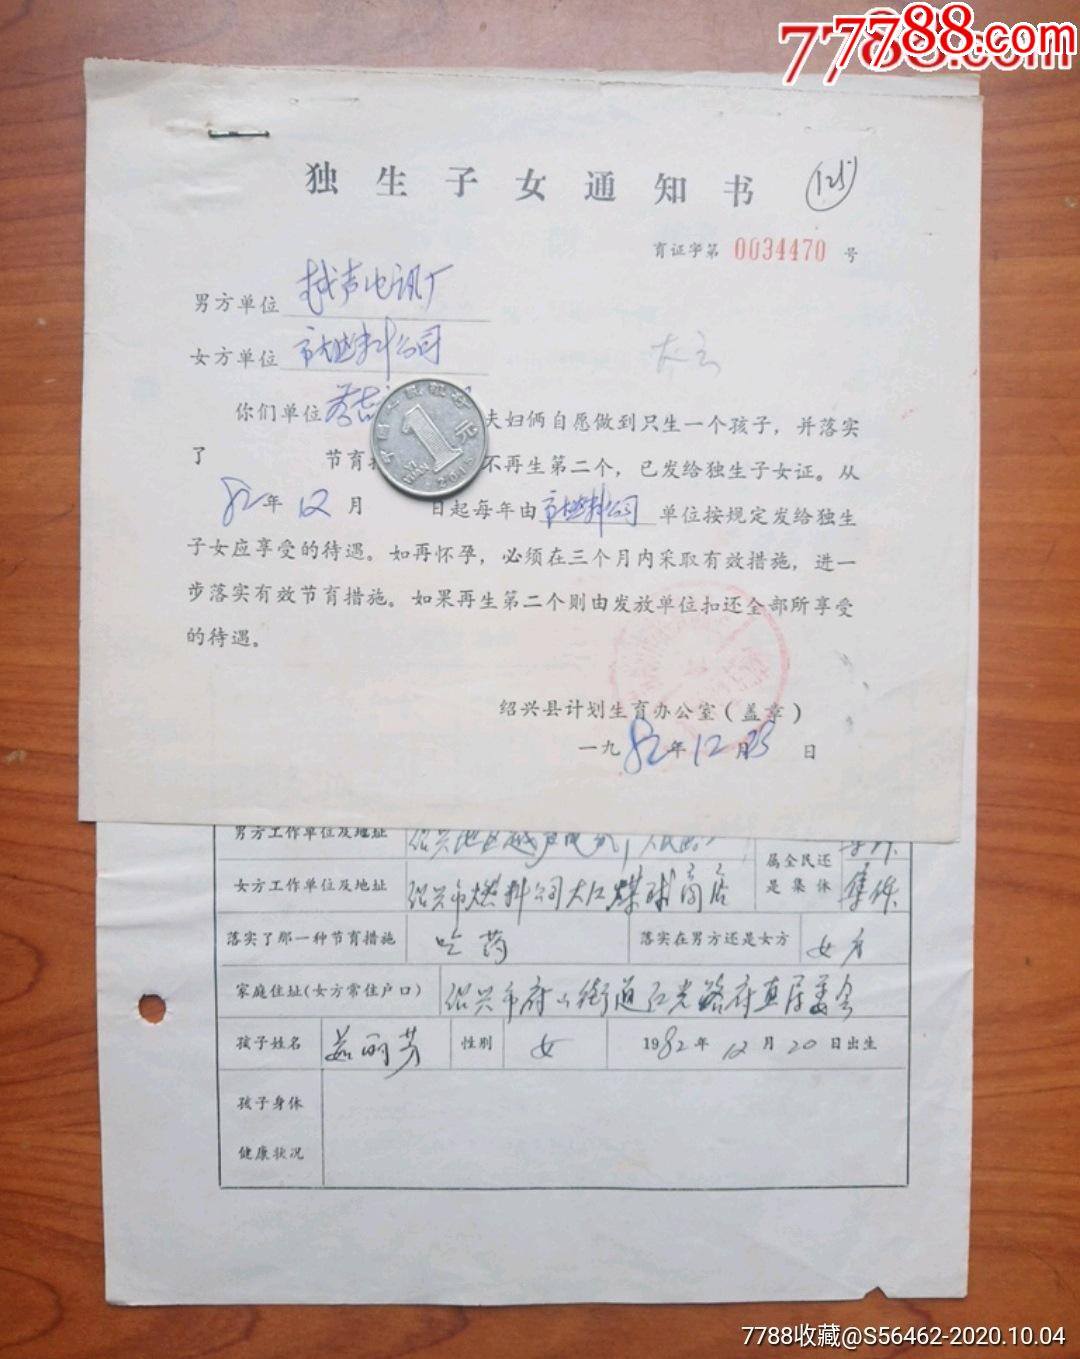 77788.com
独生子女通知书
125
育证字第 0034470 号
男方单位 越声电讯厂
女方单位 市燃料公司
你们单位 夫妇俩自愿做到只生一个孩子，并落实
了 节育 不再生第二个，已发给独生子女证。从
82年12月 日起每年由市燃料公司 单位按规定发给独生
子女应享受的待遇。如再怀孕，必须在三个月内采取有效措施，进一
步落实有效节育措施。如果再生第二个则由发放单位扣还全部所享受
的待遇。
绍兴县计划生育办公室（盖章）
一九82年12月23日
男方工作单位及地址 绍兴地区越声电讯厂
属全民还
是集体
女方工作单位及地址 绍兴市燃料公司大江煤球商店 集体
落实了那一种节育措施 吃药 落实在男方还是女方 女方
家庭住址(女方常住户口) 绍兴市府山街道红光路府直居委会
孩子姓名 茹丽芳 性别 女 1982年12月20日出生
孩子身体
健康状况
1
7788收藏@S56462-2020.10.04